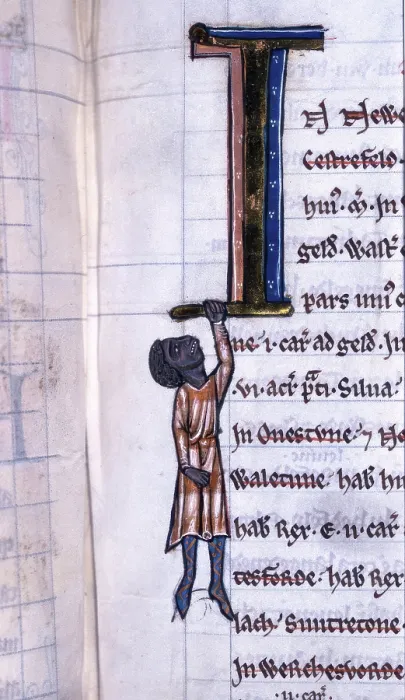 IN Newe
Cestrefeld.
hui᾽. ⁊. In W
geld. Walt᾽
pars uni᾽ c
ne .i. car᾽ ad geld. In
.vi. acr᾽ p̃ti. Silua
In Onestune. ⁊ No
Waletune. hab᾽ hu
hab᾽ Rex. E. ii. car᾽
tesforde. hab᾽ Rex
lach. Suntretone
In Werchesvorde
.ii. car᾽.